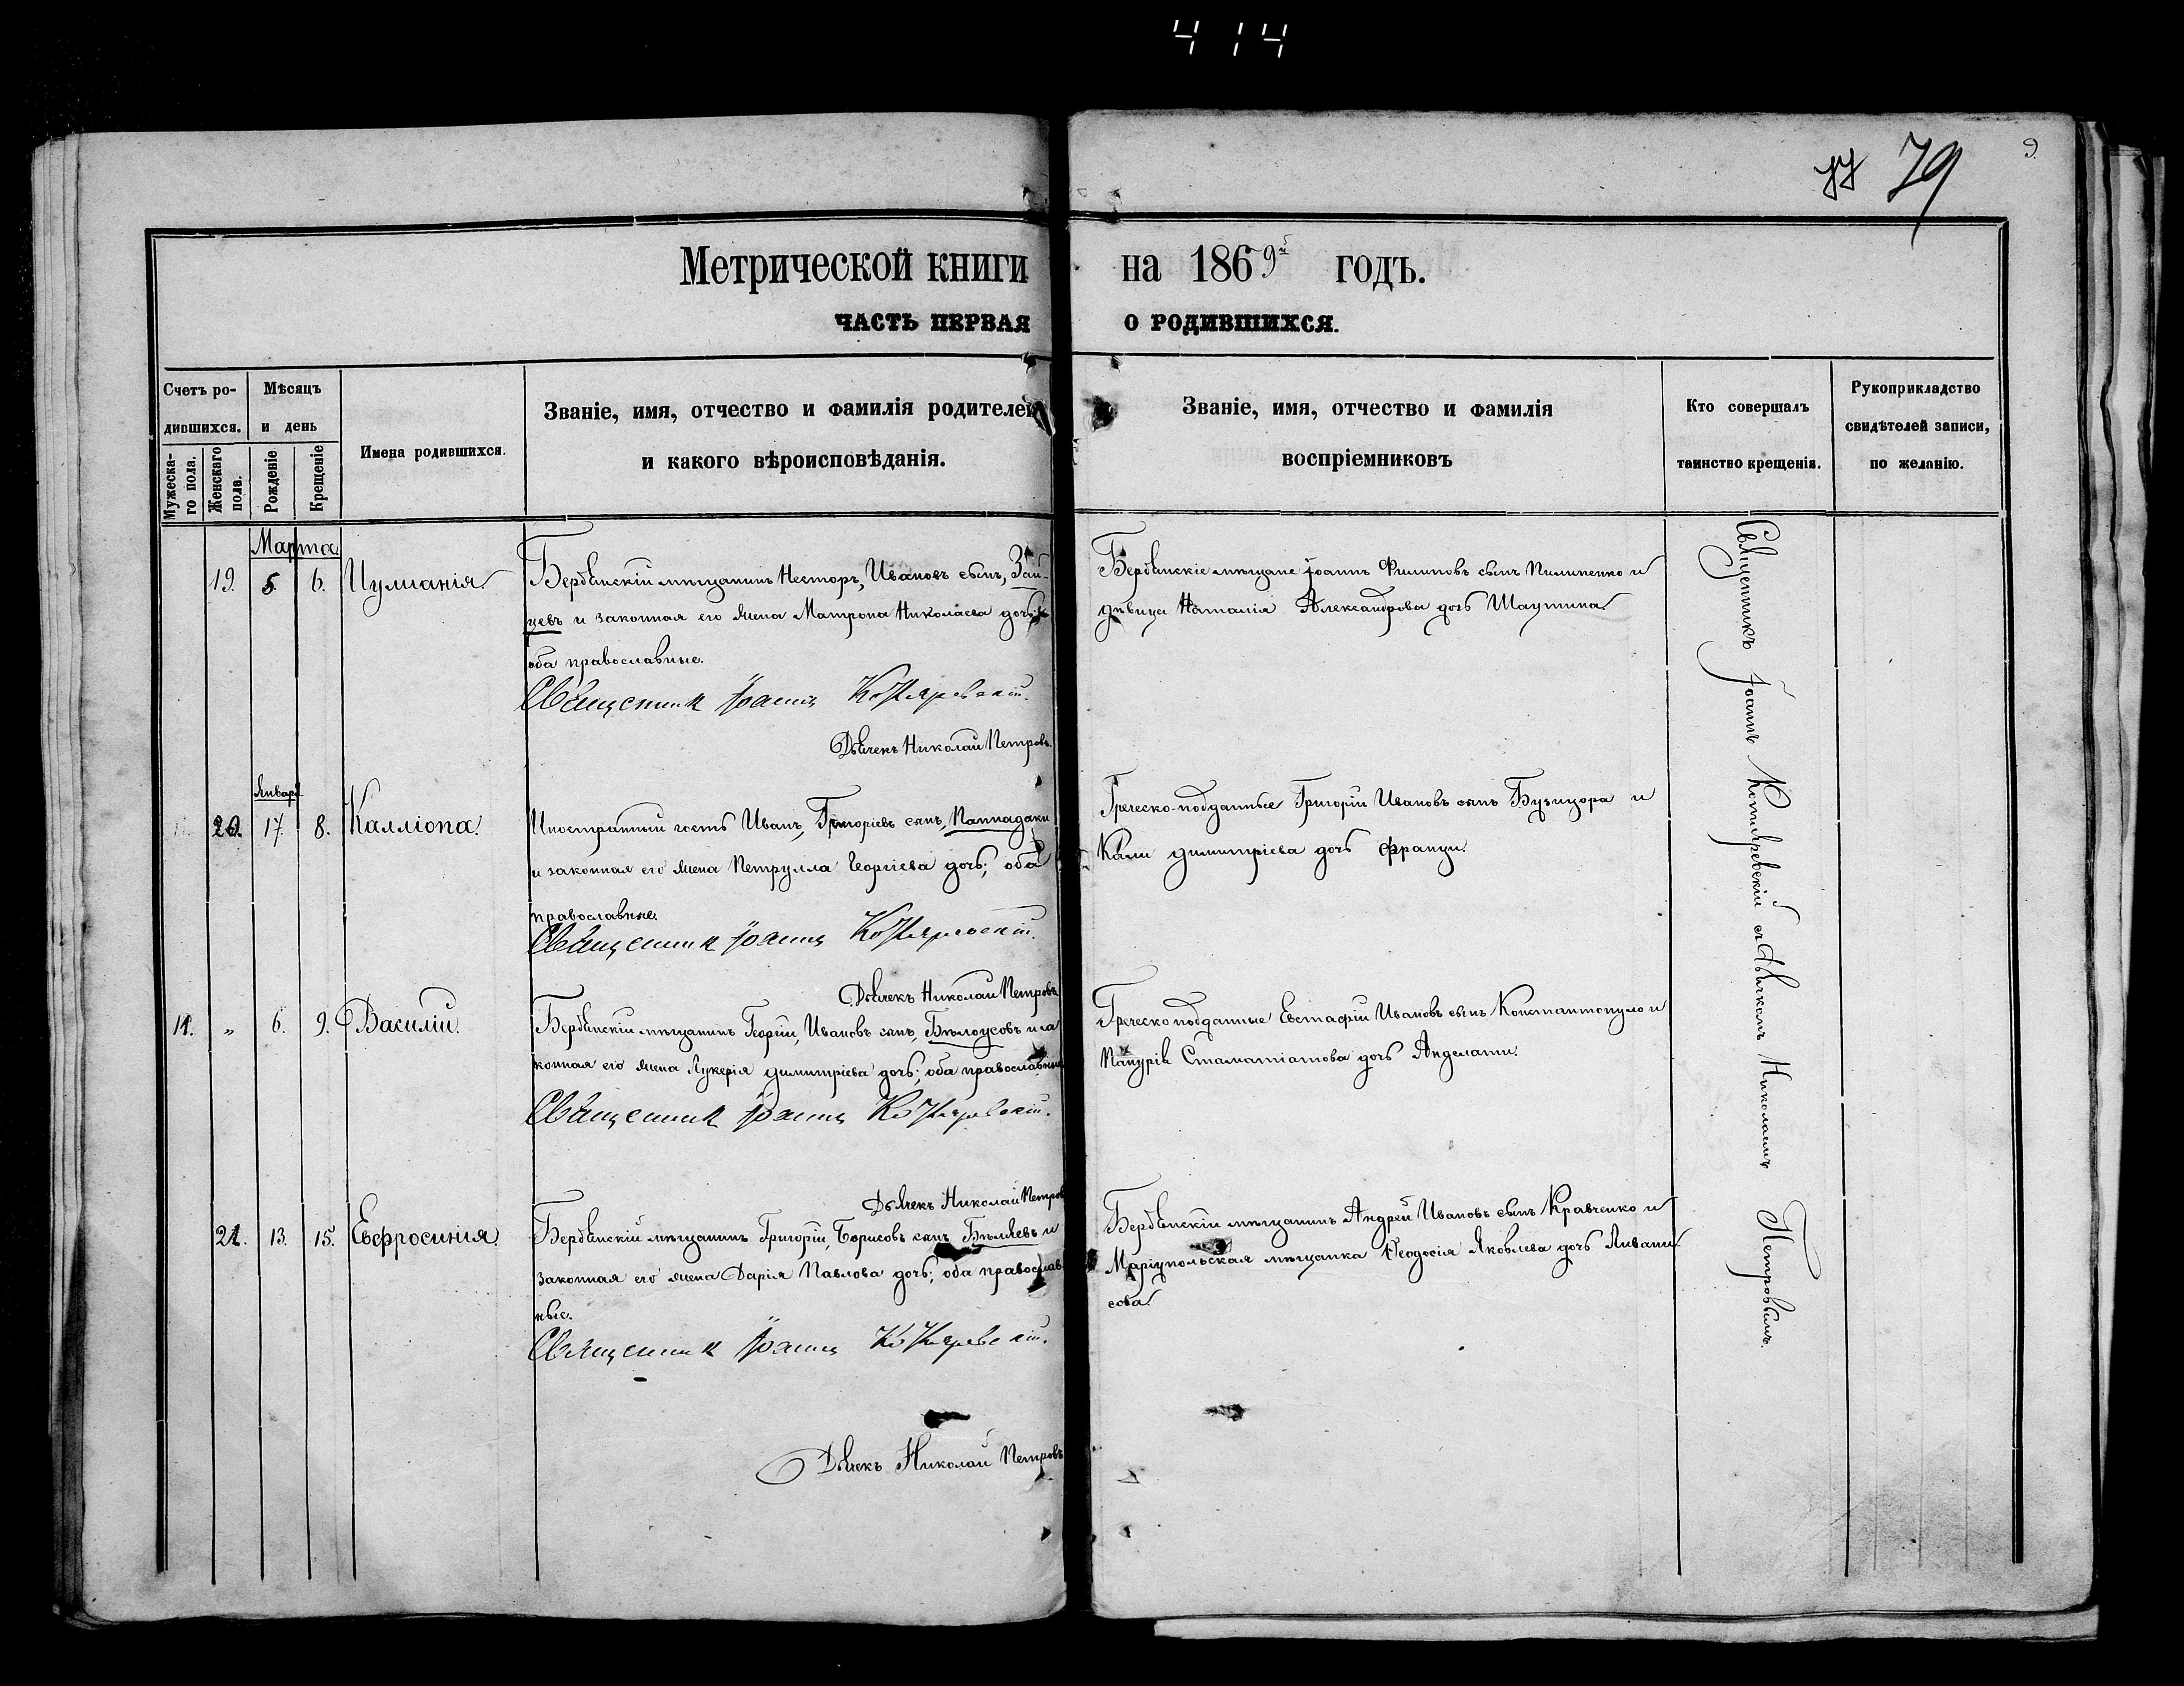 414
79
9
Метрической книги на 1869й годъ.
ЧАСТЬ ПЕРВАЯ О РОДИВШИХСЯ.
Счетъ родившихся.
Мужескаго пола.
Женскаго пола.
Мѣсяцъ и день
Рожденіе
Крещеніе
Имена родившихся.
Званіе, имя, отчество и фамилія родителей
и какого вѣроисповѣданія.
Званіе, имя, отчество и фамилія
воспріемниковъ
Кто совершалъ
таинство крещенія.
Рукоприкладство
свидѣтелей записи,
по желанію.
Марта
19. 5. 6. Иулианія
Бердянскій мѣщанинъ Несторъ, Ивановъ сынъ, Зай-
цевъ и законная его жена Матрона Николаева дочь
оба православные.
Священник Іоаннъ Котляревскій.
Дьячекъ Николай Петровъ.
Бердянскіе мѣщане Іоаннъ Филиповъ сынъ Пилипенко и
дѣвица Наталія Александрова дочь
Январ
20. 17. 8. Калліопа
Иностранный гость Иванъ, Григоріевъ сынъ, Паппадаки
и законная его жена Петрулла Георгіева дочь; оба
православные
Священник Іоаннъ Котляревскій.
Дьячекъ Николай Петровъ
Греческо-подданные Григорій Ивановъ сынъ и
Кали Димитріева дочь Франци
14. " 6. 9. Василій
Бердянскій мѣщанинъ Георгій, Ивановъ сынъ, Бѣлоусовъ и за
конная его жена Лукерія Димитріева дочь; оба православные
Священник Іоаннъ Котляревскій.
Дьячекъ Николай Петров
Греческо подданные Евстафій Ивановъ сынъ Константопуло и
Стаматіатова дочь
21. 13. 15. Евфросинія
Бердянскій мѣщанинъ Григорій, Борисовъ сынъ Бѣляевъ и
законная его жена Дарія Павлова дочь; оба православ
ные.
Священник Іоаннъ Котляревскій.
Дьячекъ Николай Петровъ
Бердянскій мѣщанинъ Андрей Ивановъ сынъ Кравченко и
Маріупольская мѣщанка Ѳеодосія Яковлева дочь
сова
Священникъ Іоаннъ Котляревскій съ дьячкомъ Николаемъ Петровымъ.